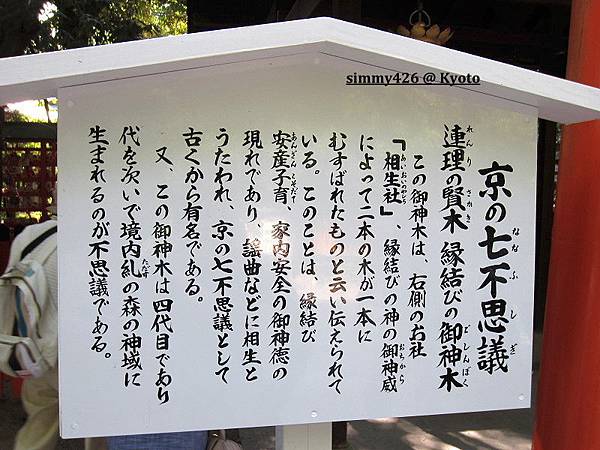 simmy426 @ Kyoto
京の七不思議
ななふしぎ
連理の賢木 縁結びの御神木
れんり さかき ごしんぼく
この御神木は、右側のお社
「相生社」、縁結びの神の御神威
あいおいのやしろ おちから
によって二本の木が一本に
むすばれたものと云い伝えられて
いる。このことは、縁結び
安産子育、家内安全の御神徳の
あんざんこそだて
現れであり、謡曲などに相生と
うたわれ、京の七不思議として
古くから有名である。
又、この御神木は四代目であり
代を次いで境内糺の森の神域に
ただす
生まれるのが不思議である。